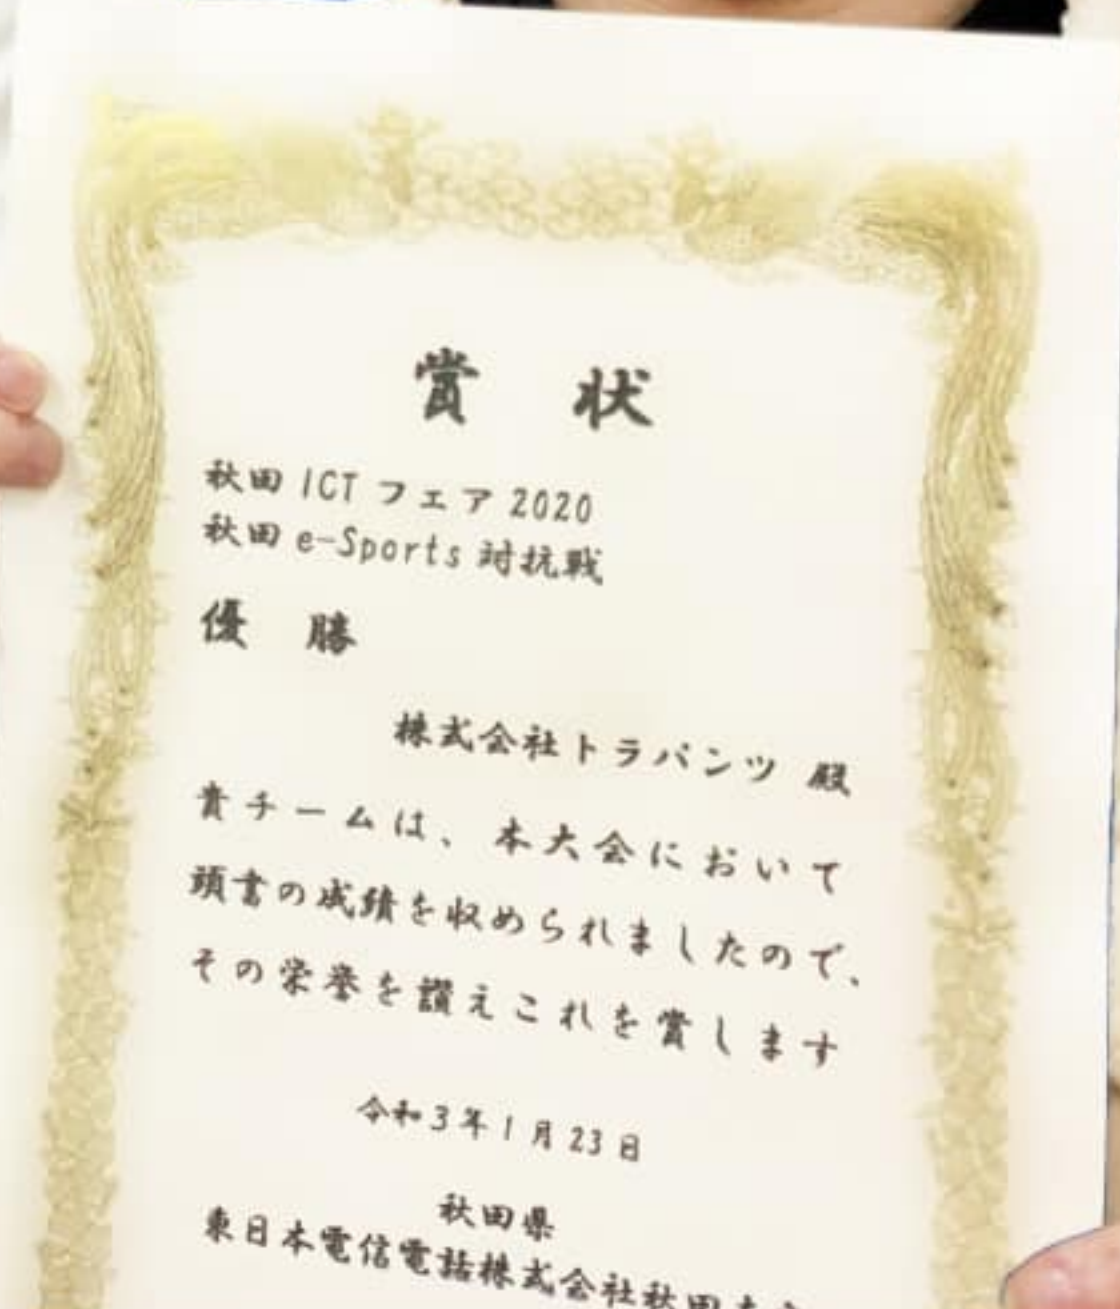 賞 状
秋田 ICT フェア 2020
秋田 e-Sports 対抗戦
優 勝
株式会社トラパンツ 殿
貴チームは、本大会において
頭書の成績を収められましたので、
その栄誉を讃えこれを賞します
令和3年1月23日
秋田県
東日本電信電話株式会社秋田